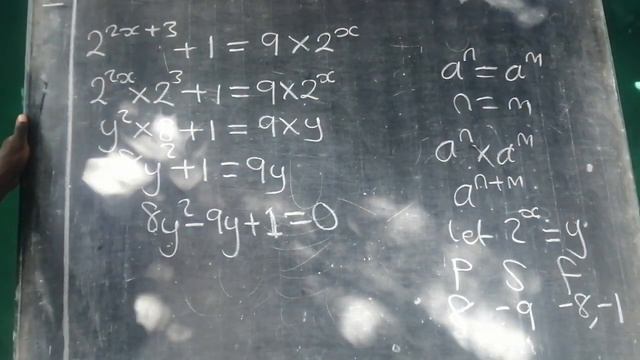 2^{2x+3} + 1 = 9 × 2^x
2^{2x} × 2^3 + 1 = 9 × 2^x
y^2 × 8 + 1 = 9 × y
y^2 + 1 = 9y
8y^2 - 9y + 1 = 0
a^n = a^m
n = m
a^n × a^m
a^{n+m}
let 2^x = y
P S F
8 -9 -8, -1